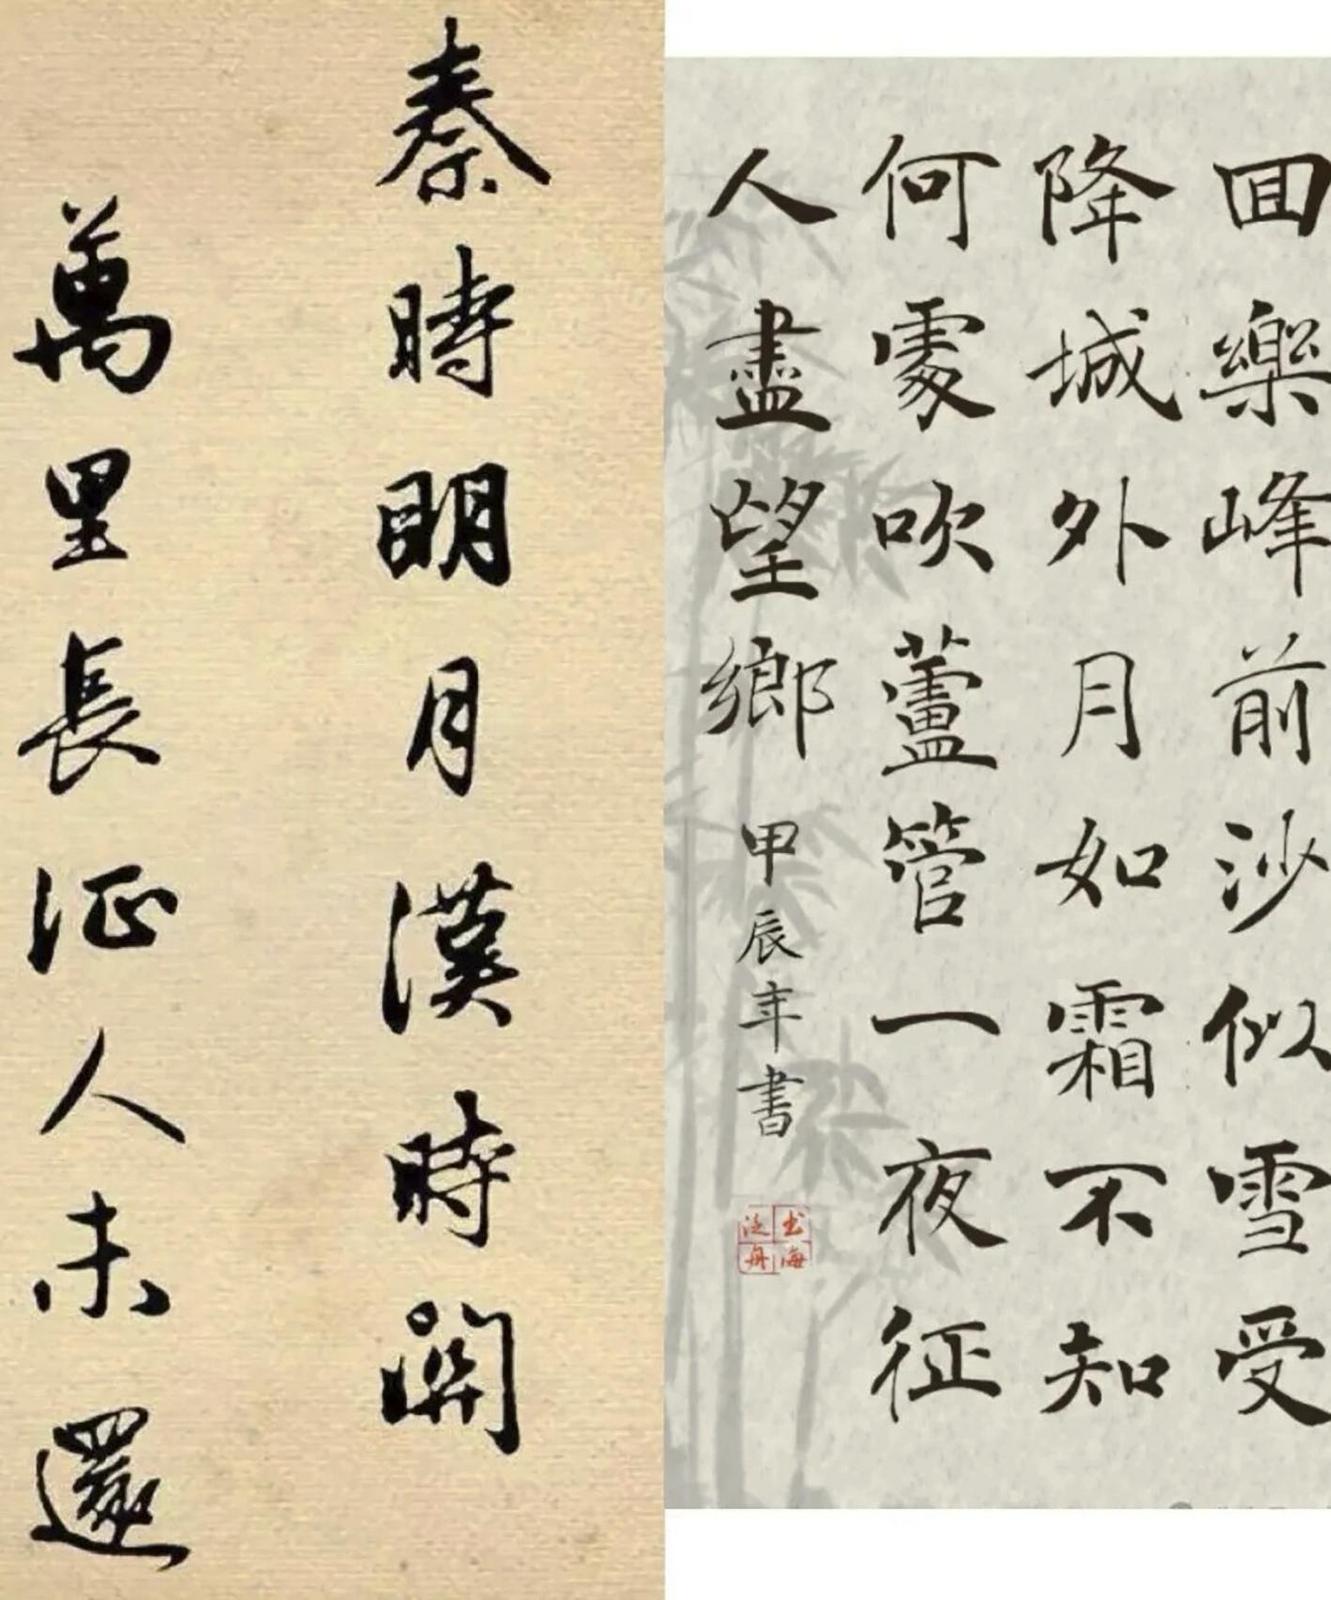 秦時明月漢時關
萬里長征人未還
回樂峰前沙似雪受
降城外月如霜不知
何處吹蘆管一夜征
人盡望鄉 甲辰年書
书海
泛舟